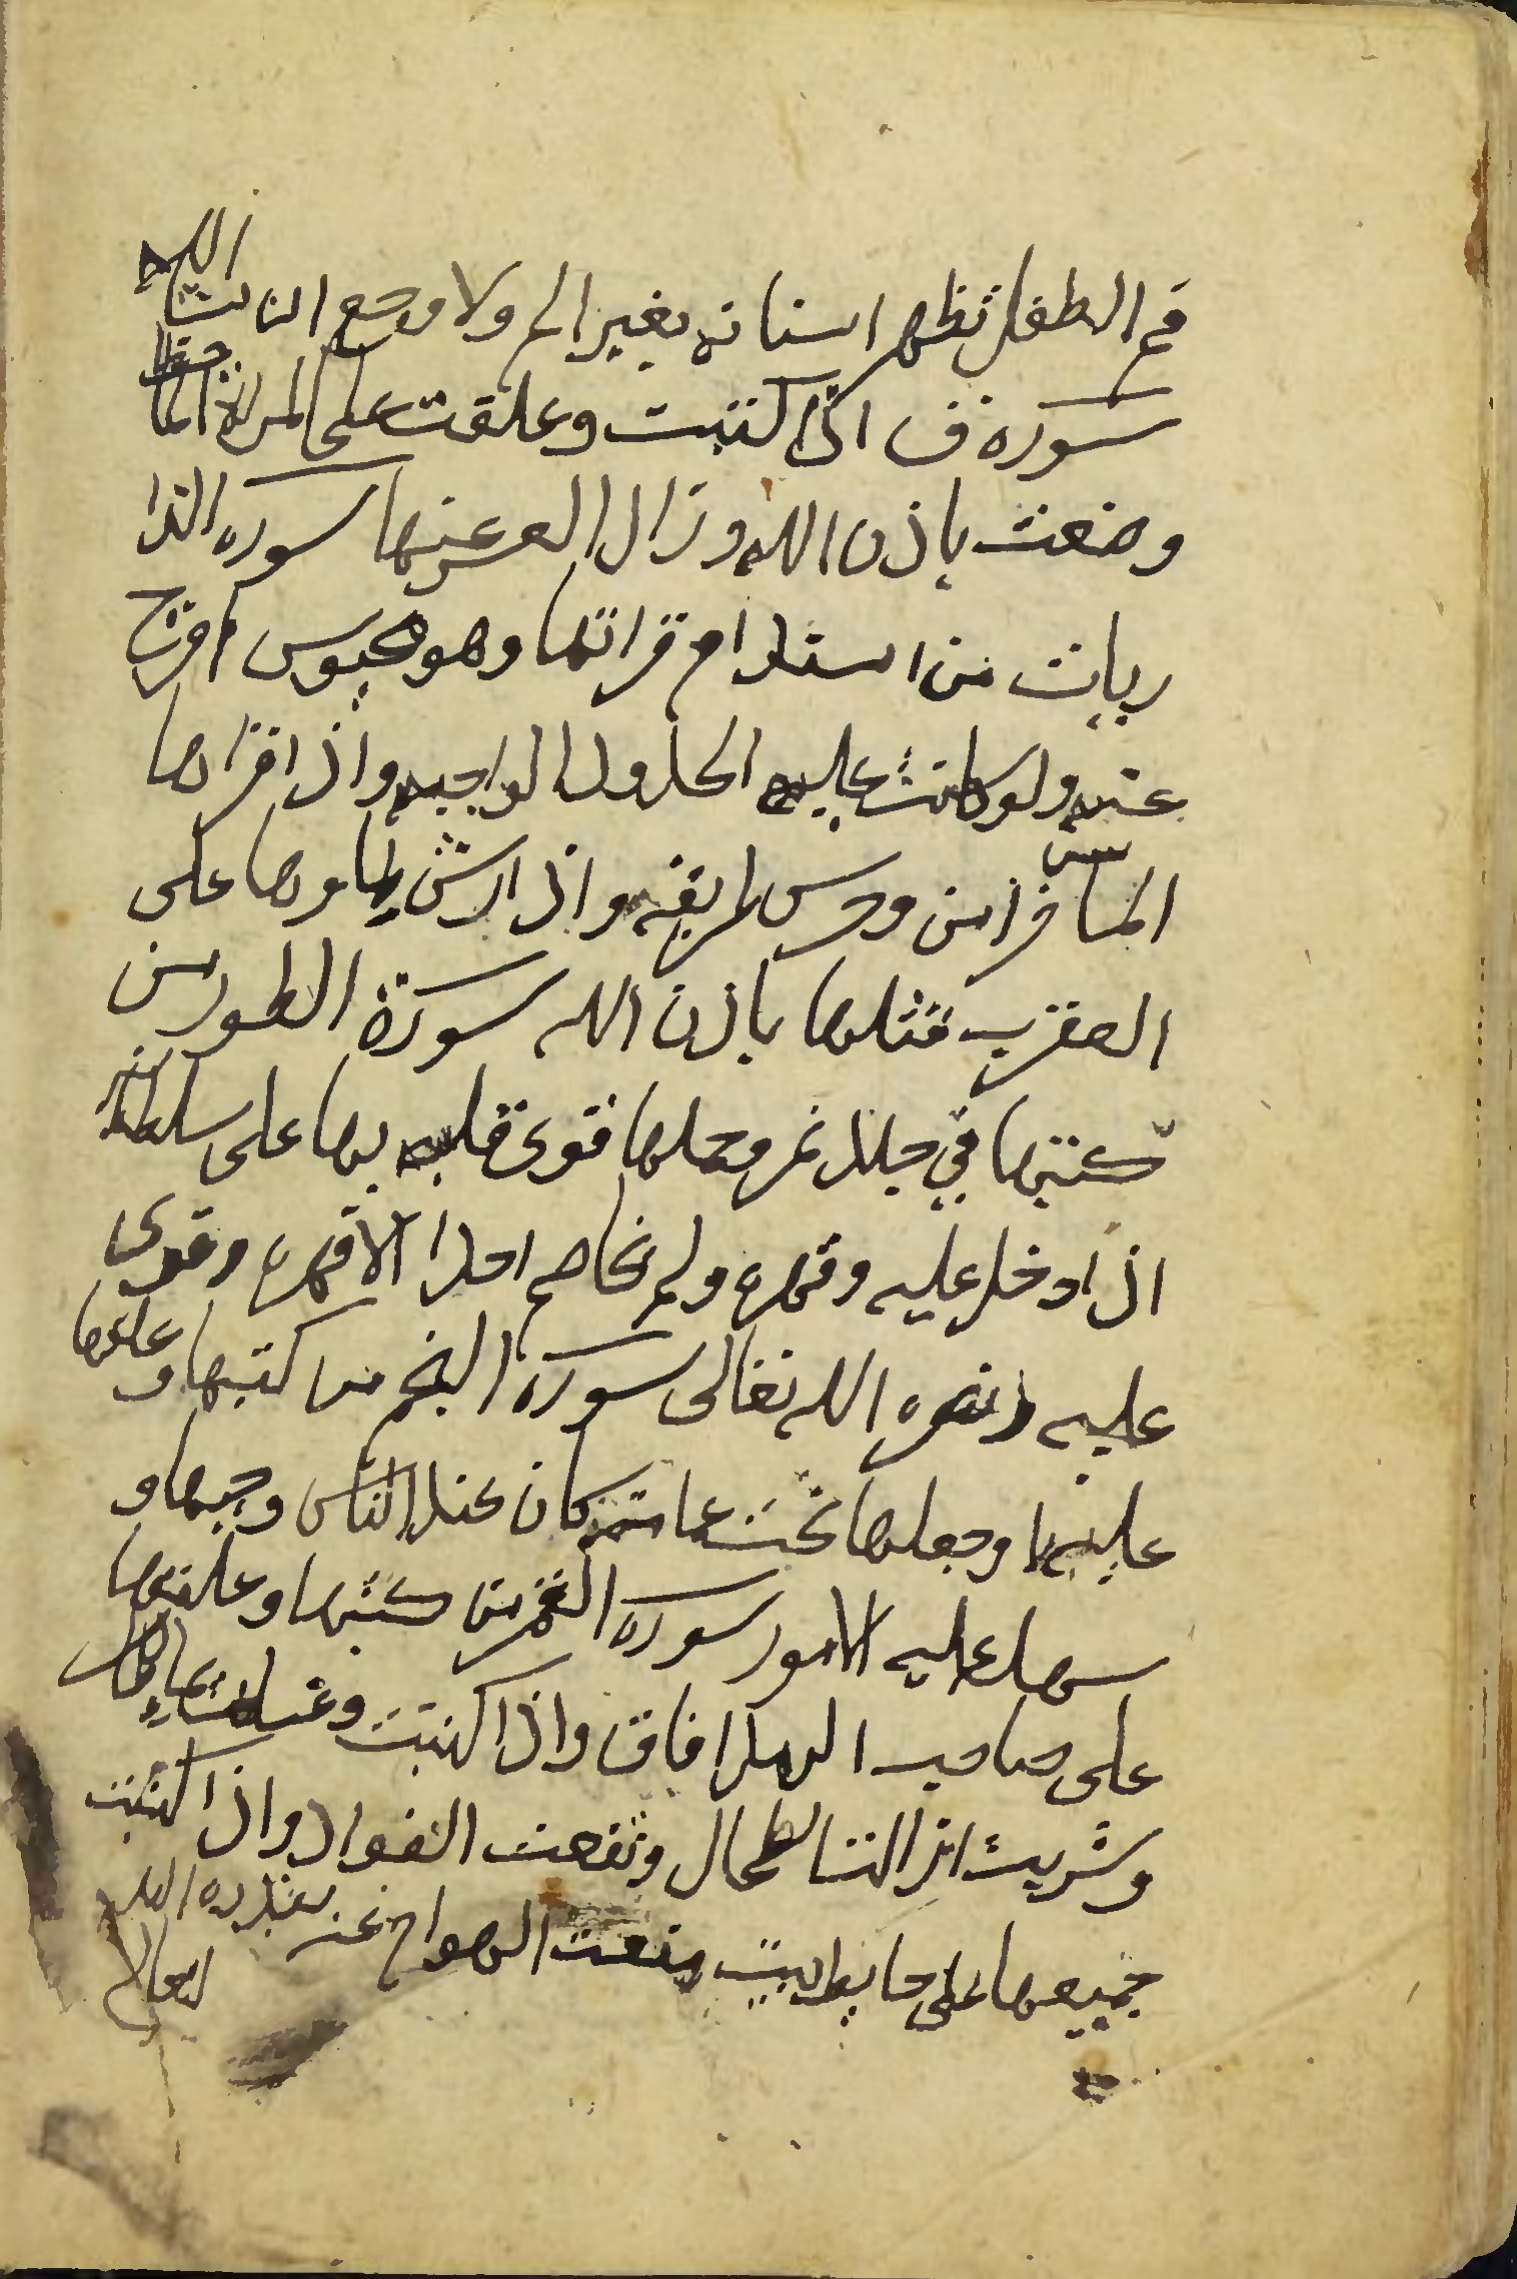 فم الطفل تظهر اسنانه بغير الم ولا وجع النابت الله
سورة ق اذا كتبت وعلقت على المراة الما
وضعت باذن الله وزال العسر عنها سورة الذا
ريات من استدام قراتها وهو محبوس افرج
عنه ولو كانت عليه الحدود الواجبه واذا قراها
المسافر امن وحرس طريقه واذا رش ماوها على
العقرب قتلها باذن الله سورة الطور من
كتبها في جلد نمر وحملها قوى قلبه بها على سلطانه
اذا دخل عليه وقهره ولم يخاصم احدا الا قهره وقوى
عليه ونصره الله تعالى سورة النجم من كتبها وعلقها
عليه او جعلها تحت عمامته كان عند الناس وجيها و
سهل عليه الامور سورة القمر من كتبها وعلقها
على صاحب افاق واذا كتبت وغسلت بماء
وشربت ازالت الطحال ونفعت الفواد واذا كتبت
جميعها على حايط البيت منعت الهوام عنه بقدرة الله
تعالى